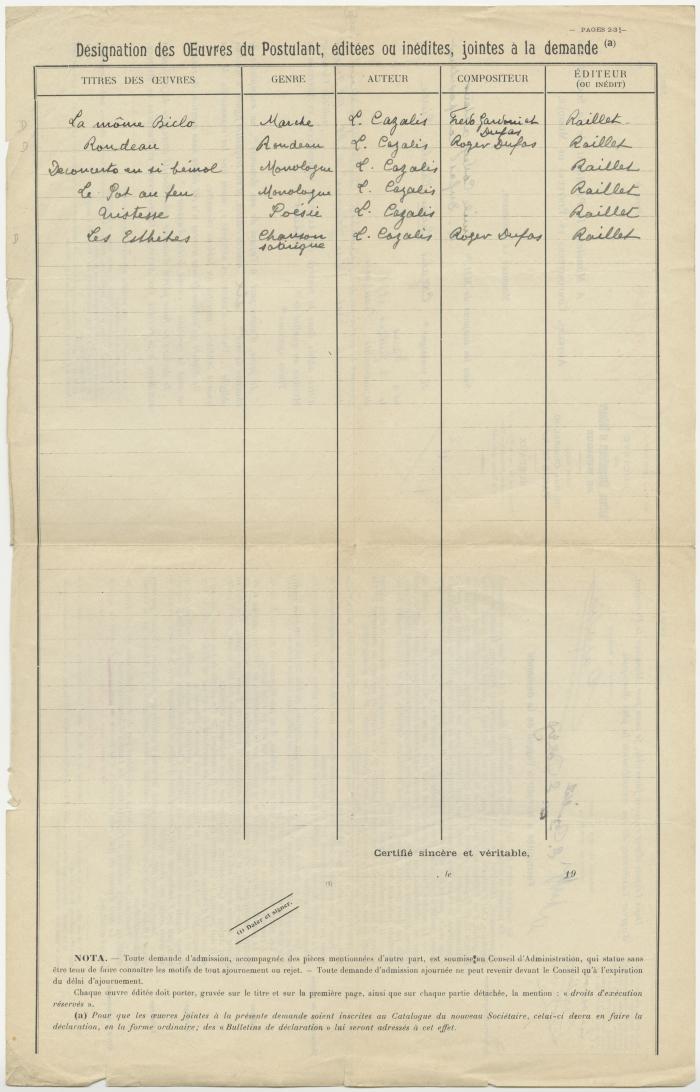 — PAGES 2-3 —
Désignation des Œuvres du Postulant, éditées ou inédites, jointes à la demande (a)
TITRES DES ŒUVRES GENRE AUTEUR COMPOSITEUR ÉDITEUR
(OU INÉDIT)
La môme Biclo Marche L. Cazalis et Raillet
Dufas
Rondeau Rondeau L. Cazalis Roger Dufas Raillet
Deconcerto en si bémol Monologue L. Cazalis Raillet
Le Pot au feu Monologue L. Cazalis Raillet
Tristesse Poésie L. Cazalis Raillet
Les Esthètes Chanson L. Cazalis Roger Dufas Raillet
satirique
Certifié sincère et véritable,
, le 19
(1)
(1) Dater et signer.
NOTA. — Toute demande d'admission, accompagnée des pièces mentionnées d'autre part, est soumise au Conseil d'Administration, qui statue sans
être tenu de faire connaître les motifs de tout ajournement ou rejet. — Toute demande d'admission ajournée ne peut revenir devant le Conseil qu'à l'expiration
du délai d'ajournement.
Chaque œuvre éditée doit porter, gravée sur le titre et sur la première page, ainsi que sur chaque partie détachée, la mention : « droits d'exécution
réservés ».
(a) Pour que les œuvres jointes à la présente demande soient inscrites au Catalogue du nouveau Sociétaire, celui-ci devra en faire la
déclaration, en la forme ordinaire; des « Bulletins de déclaration » lui seront adressés à cet effet.